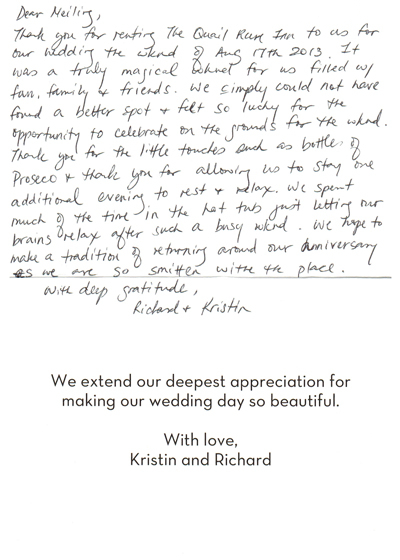 Dear Meiling,
Thank you for renting The Quail Run Inn to us for
our wedding the wknd of Aug 17th 2013. It
was a truly magical wknd for us filled w/
fun, family & friends. We simply could not have
found a better spot & felt so lucky for the
opportunity to celebrate on the grounds for the wknd.
Thank you for the little touches such as bottles of
Proseco & thank you for allowing us to stay one
additional evening to rest & relax. We spent
much of the time in the hot tub just letting our
brains relax after such a busy wknd. We hope to
make a tradition of returning around our Anniversary
as we are so smitten with the place.
With deep gratitude,
Richard & Kristin
We extend our deepest appreciation for
making our wedding day so beautiful.
With love,
Kristin and Richard